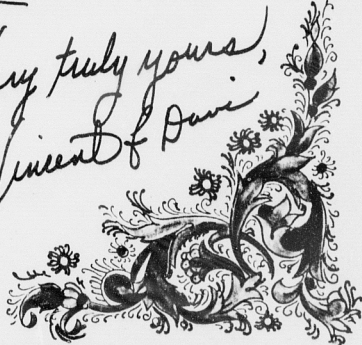 ry truly yours,
Vincent f Davi